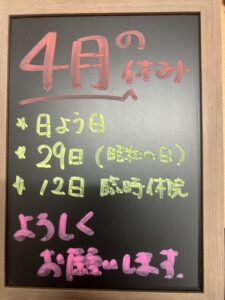 4月の休み
★ 日よう日
★ 29日(昭和の日)
★ 12日 臨時休院
よろしく
お願いします.